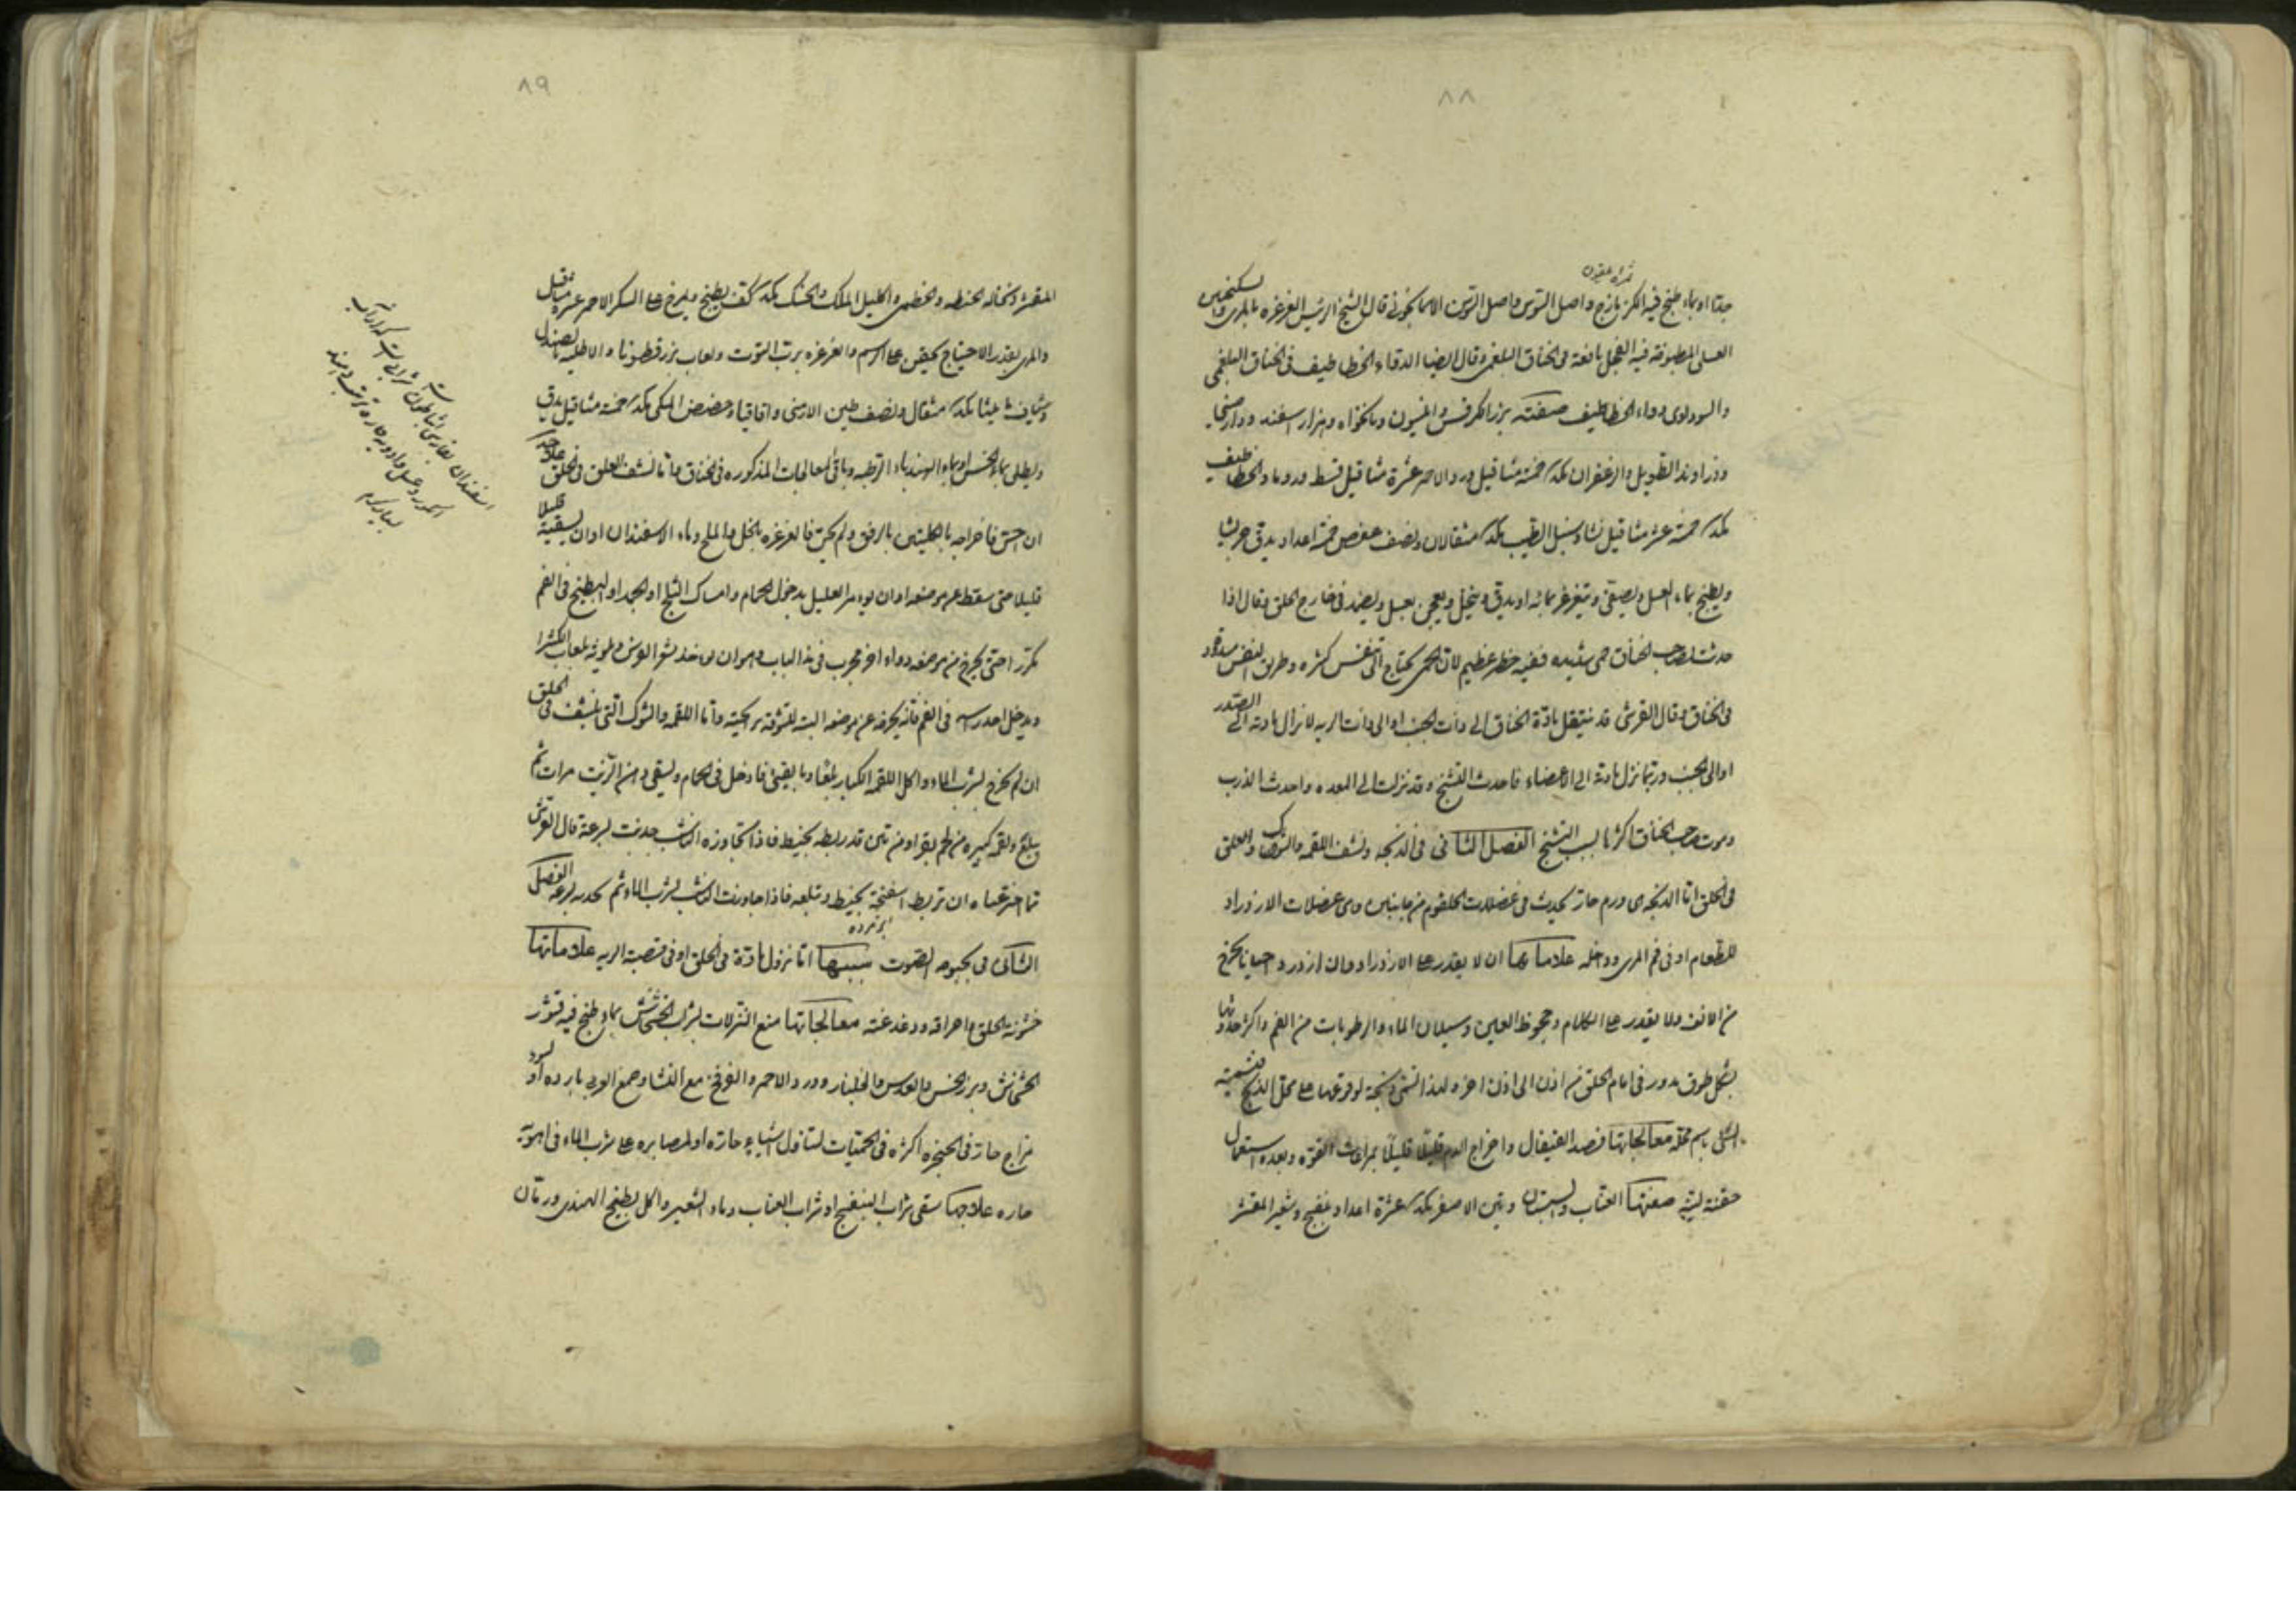 ٨٨
جدا او بماء طبخ فيه الكزبازج واصل السوس واصل السوسن الاسمانجوني قال الشيخ الرئيس الغرغره بالمرى والسكنجبين
العسلى المطبوخة فيه الفجل نافعة فى الخناق البلغمى وقال ايضا الدواء الخطاطيف فى الخناق البلغمى
والسوداوى دواء الخطاطيف صفته بزر الكرفس وانيسون ونانخواه وهزار اسفند ودارصينى
وزراوند الطويل والزعفران بكد خمسة مثاقيل ورد الاحمر عشرة مثاقيل قسط ورماد الخطاطيف
بكد خمسة عشر مثاقيل نشا وسنبل الطيب بكد مثقالان ونصف عفص خمسة اعداد يدق جريشا
ويطبخ بماء العسل ويصفى ويتغرغر بمائه او يدق وينخل ويعجن بعسل ويضمد فى خارج الحلق وقال اذا
حدثت لصاحب الخناق حمى شديده ففيه خطر عظيم لان الحمى يحتاج الى تنفس كثره وطريق النفس مسدود
فى الخناق وقال القرشى قد ينتقل مادة الخناق الى ذات الجنب او الى ذات الريه لانزال مادته الى الصدر
او الى الجنب وربما نزل مادته الى الاعضاء فاحدث التشنج وقد نزلت الى المعده واحدث الذرب
وموت صاحب الخناق اكثرها لسبب التشنج الفصل الثانى فى الذبحه ونشف اللقمه والشوك والعلق
فى الحلق اما الذبحه هى ورم حار يحدث فى عضلات الحلقوم من جانبيه وهى عضلات الازدراد
للطعام او فى فم المرى وداخله علاماتها ان لا يقدر على الازدراد وان ازدرد احيانا يخرج
من الانف ولا يقدر على الكلام وجحوظ العين وسيلان الماء والرطوبات من الفم واكثر حدوثها
بشكل طوق يدور فى امام الحلق من اذن الى اذن اخره لهذا تسمى ذبحة لوقوعها على محل الذبح تسمية
الشئ باسم محله معالجاتها فصد القيفال واخراج الدم قليلا قليلا بمراعات القوه وبعده استعمال
حقنة لينه صفتها العناب والسبستان وتين الاصفر بكد عشرة اعداد بنفسج وشعير المقشر
٨٩
المقشر ونخاله الحنطه والخطمى واكليل الملك والحسك بكد كف يطبخ ويمرخ على السكر الاحمر عشره مثاقيل
والمرى بقدر الاحتياج يحقن على الرسم والغرغره برب التوت ولعاب بزر قطونا والاطليه بالصندل
وشياف ماميثا بكد مثقال ونصف طين الارمنى واقاقيا وحضض المكى بكد خمسة مثاقيل يدق
ويطلى بماء الخس او بماء الهندباء الرطبه وباقى المعالجات المذكوره فى الخناق واما نشف العلق فى الحلق علاجه
ان احس فاخراجه بالكلبتين بالرفق ولم يكن فالغرغره بالخل والملح وماء الاسفندان او ان يسقيه قليلا
قليلا حتى سقط عن موضعه او ان يؤمر العليل بدخول الحمام وامساك الثلج او الجمد او البطيخ فى الفم
مكررا حتى يخرج من موضعه دواء اخر مجرب فى هذا الباب وهو ان يوخذ شعر الفرس وملوثه بلعاب الكثيرا
ويدخل احد راسه فى الفم فانه يحرفه عن موضعه البته واما اللقمه والشوك التى نشف فى الحلق
ان لم يخرج بشرب الماء واكل اللقمه الكبار يلقاء وبالقئ فادخل فى الحمام ويسقى دهن الزيت مرات ثم
يبلع ولقمه كبيره من لحم بقر او من تين قد ربط بخيط فاذا تجاوزه الناشب جذبت بسرعة قال القرشى
مما اخترعناه ان تربط اسفنجة بخيط وتبلعه فاذا جاوزت الناشب بشرب الماء ثم بسرعة الفصل
الثالث فى بحبوحه الصوت سببها اما نزول مادة فى الحلق او فى قصبة الريه علاماتها
خشونة الحلق واحراقه ودغدغته معالجاتها منع النزلات بشراب الخشخاش بماء طبخ فيه قشور
الخشخاش وبزر الخس والعدس والجلنار وورد الاحمر والفرفخ مع النشا وصمغ العربى بارده او لسوء
مزاج حار فى الحنجره اكثره فى الحميات لتناول اشياء حاره او لمصابره على شرب الماء فى اهوية
حاره علاجها سقى شراب البنفسج او شراب العناب وماء الشعير واكل بطيخ الهندى ورمان